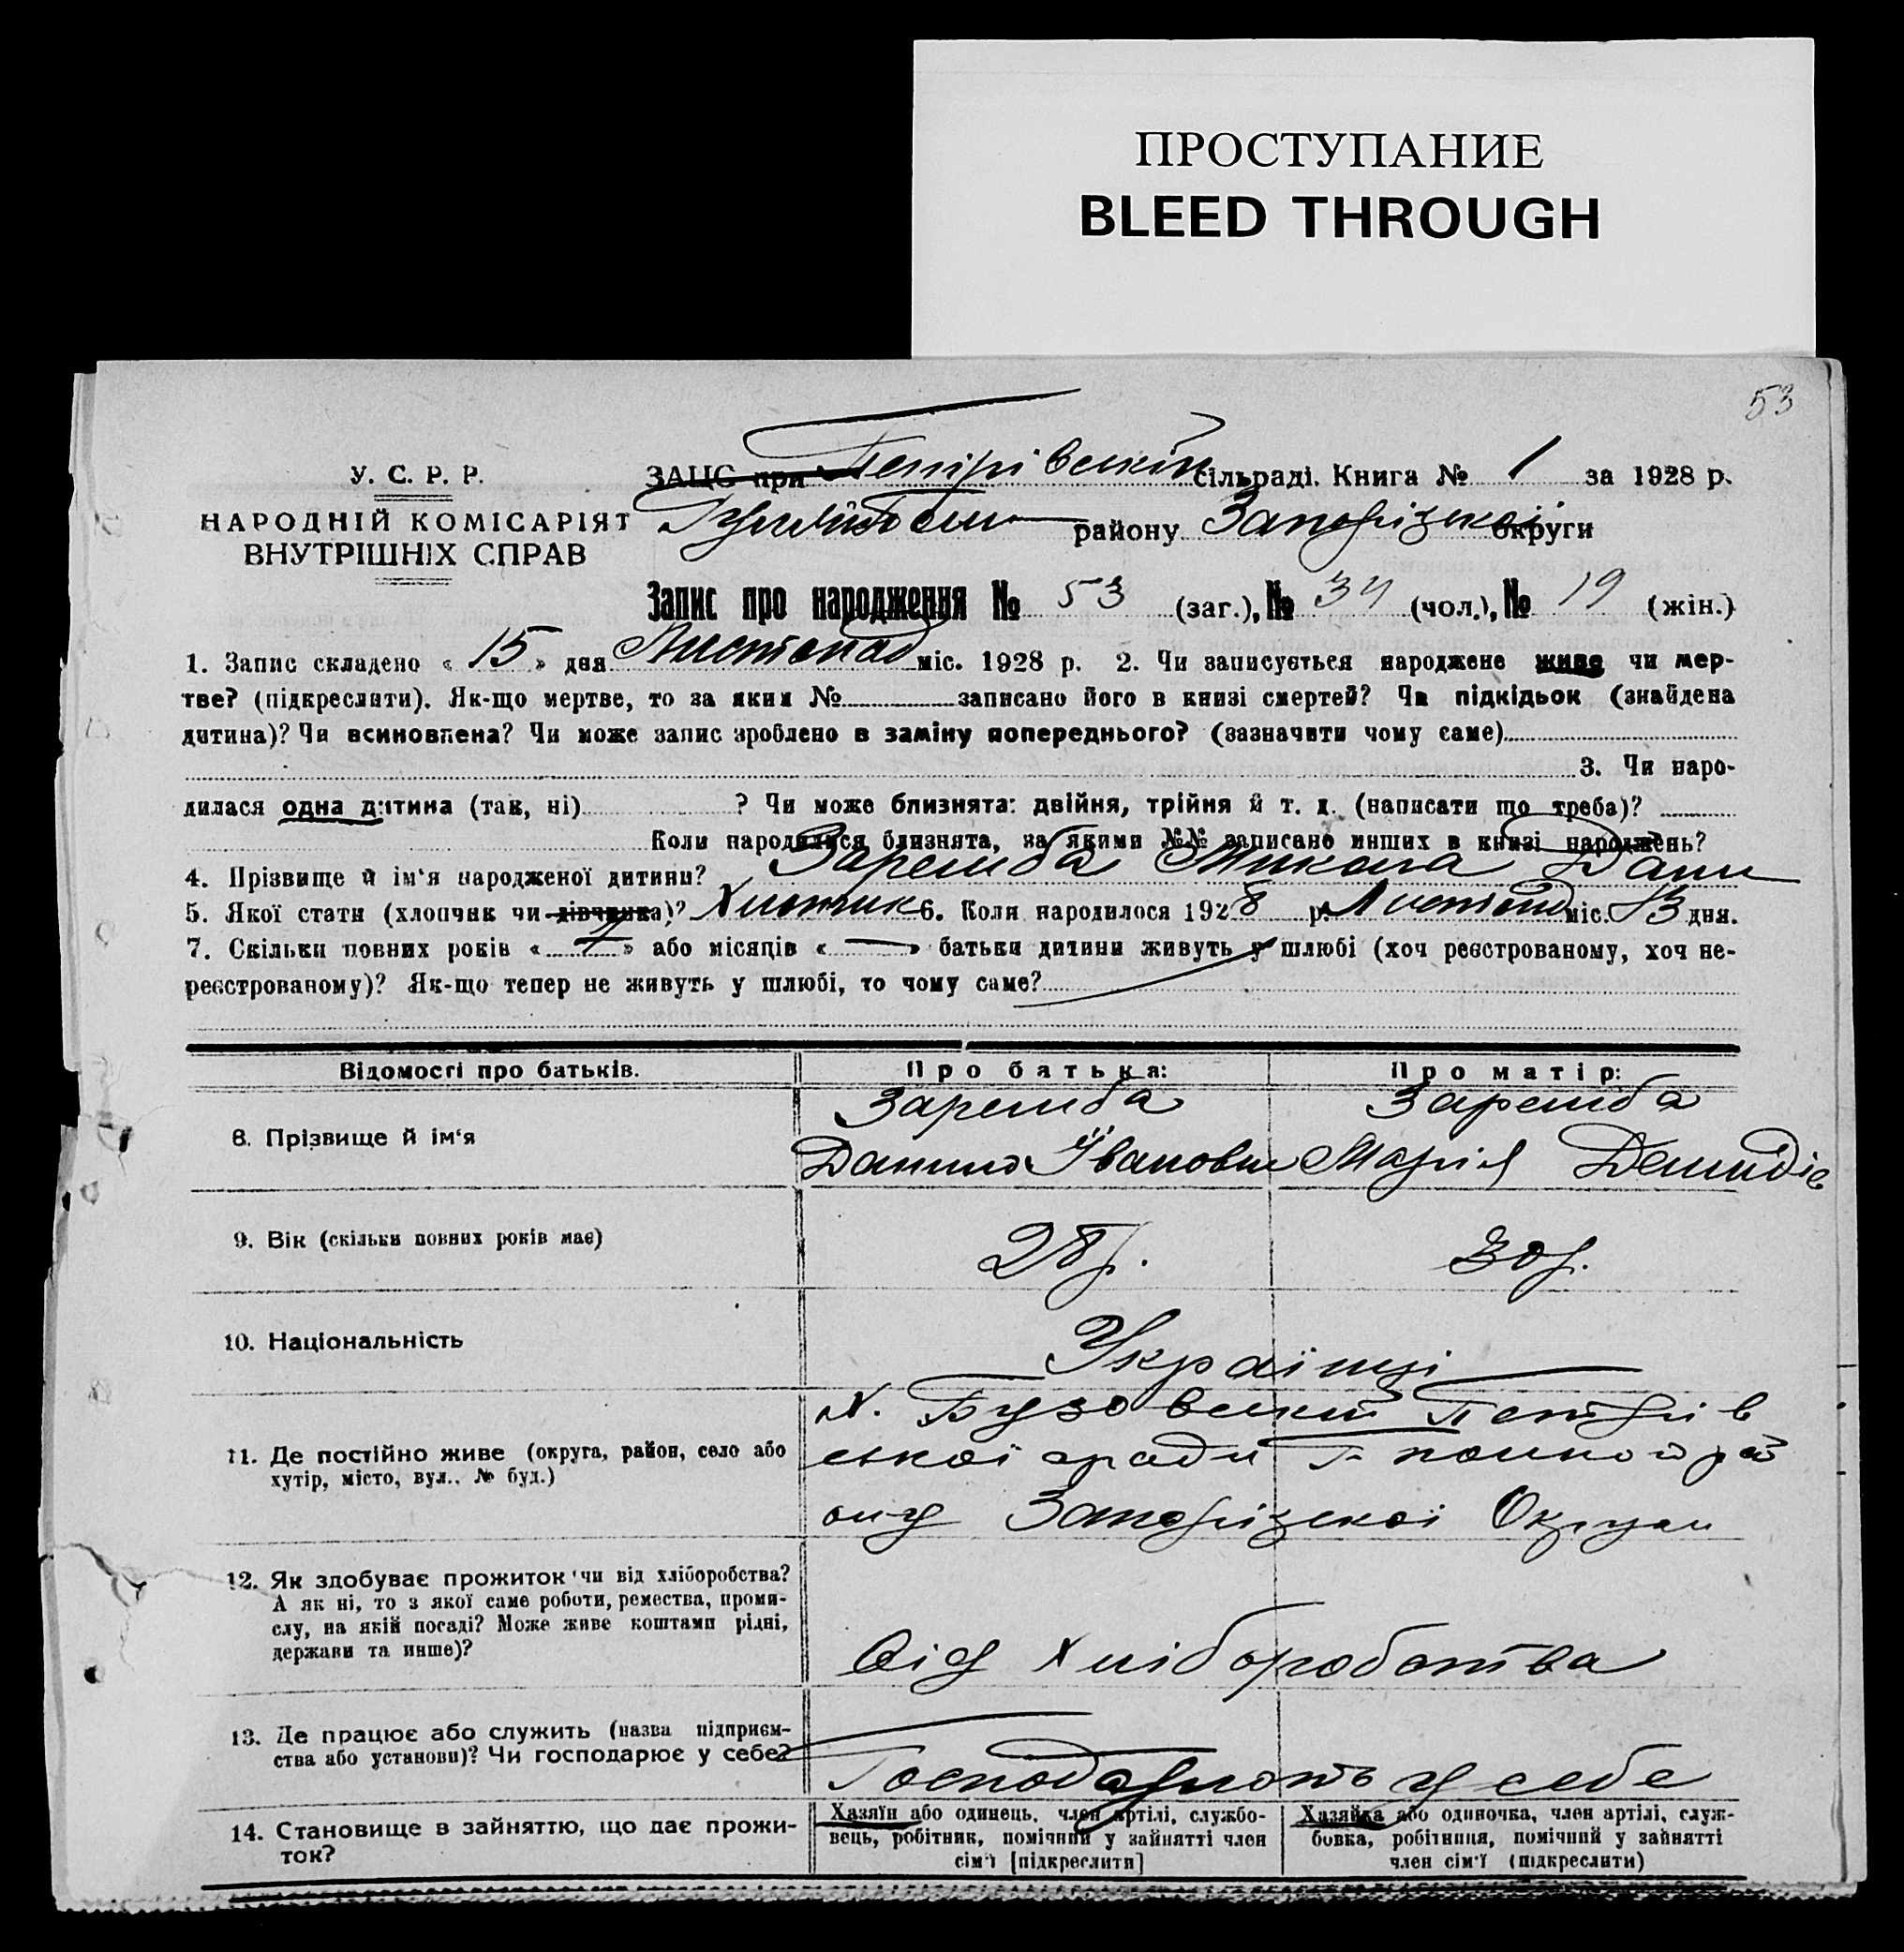 ПРОСТУПАНИЕ
BLEED THROUGH
53
У. С. Р. Р.
НАРОДНІЙ КОМІСАРІЯТ
ВНУТРІШНІХ СПРАВ
ЗАЦС при Петрівській сільраді. Книга № 1 за 1928 р.
району Запорізької округи
Запис про народження № 53 (заг.), № 34 (чол.), № 19 (жін.)
1. Запис складено « 15 » дня Листопад міс. 1928 р. 2. Чи записується народжене живе чи мер-
тве? (підкреслити). Як-що мертве, то за яким № записано його в книзі смертей? Чи підкідьок (знайдена
дитина)? Чи всиновлена? Чи може запис зроблено в заміну попереднього? (зазначити чому саме)
3. Чи наро-
дилася одна дитина (так, ні) ? Чи може близнята: двійня, трійня й т. д. (написати що треба)?
Коли народилися близнята, за якими №№ записано инших в книзі народжень?
4. Прізвище й ім‘я народженої дитини? Заремба Микола Дани
5. Якої стати (хлопчик чи дівчинка)? Хлопчик 6. Коли народилося 1928 р. Листопад міс. 13 дня.
7. Скільки повних років « 7 » або місяців « — » батьки дитини живуть у шлюбі (хоч реєстрованому, хоч не-
реєстрованому)? Як-що тепер не живуть у шлюбі, то чому саме?
Відомості про батьків. Про батька: Про матір:
8. Прізвище й ім‘я
Заремба Данило Іванович
Заремба Марія Демидів
9. Вік (скільки повних років має) 28 р. 30 р.
10. Національність Українці
11. Де постійно живе (округа, район, село або
хутір, місто, вул.. № буд.)
х. Бузовський Петрів
ської зради рай
ону Запорізської Округи
12. Як здобуває прожиток (чи від хліборобства?
А як ні, то з якої саме роботи, ремества, проми-
слу, на якій посаді? Може живе коштами рідні,
держави та инше)?
Від Хліборобства
13. Де працює або служить (назва підприєм-
ства або установи)? Чи господарює у себе?
Господарюють у себе
14. Становище в зайняттю, що дає прожи-
ток?
Хазяїн або одинець, член артілі, службо-
вець, робітник, помічний у зайнятті член
сім‘ї [підкреслити]
Хазяйка або одиночка, член артілі, служ-
бовка, робітниця, помічний у зайнятті
член сім‘ї (підкреслити)